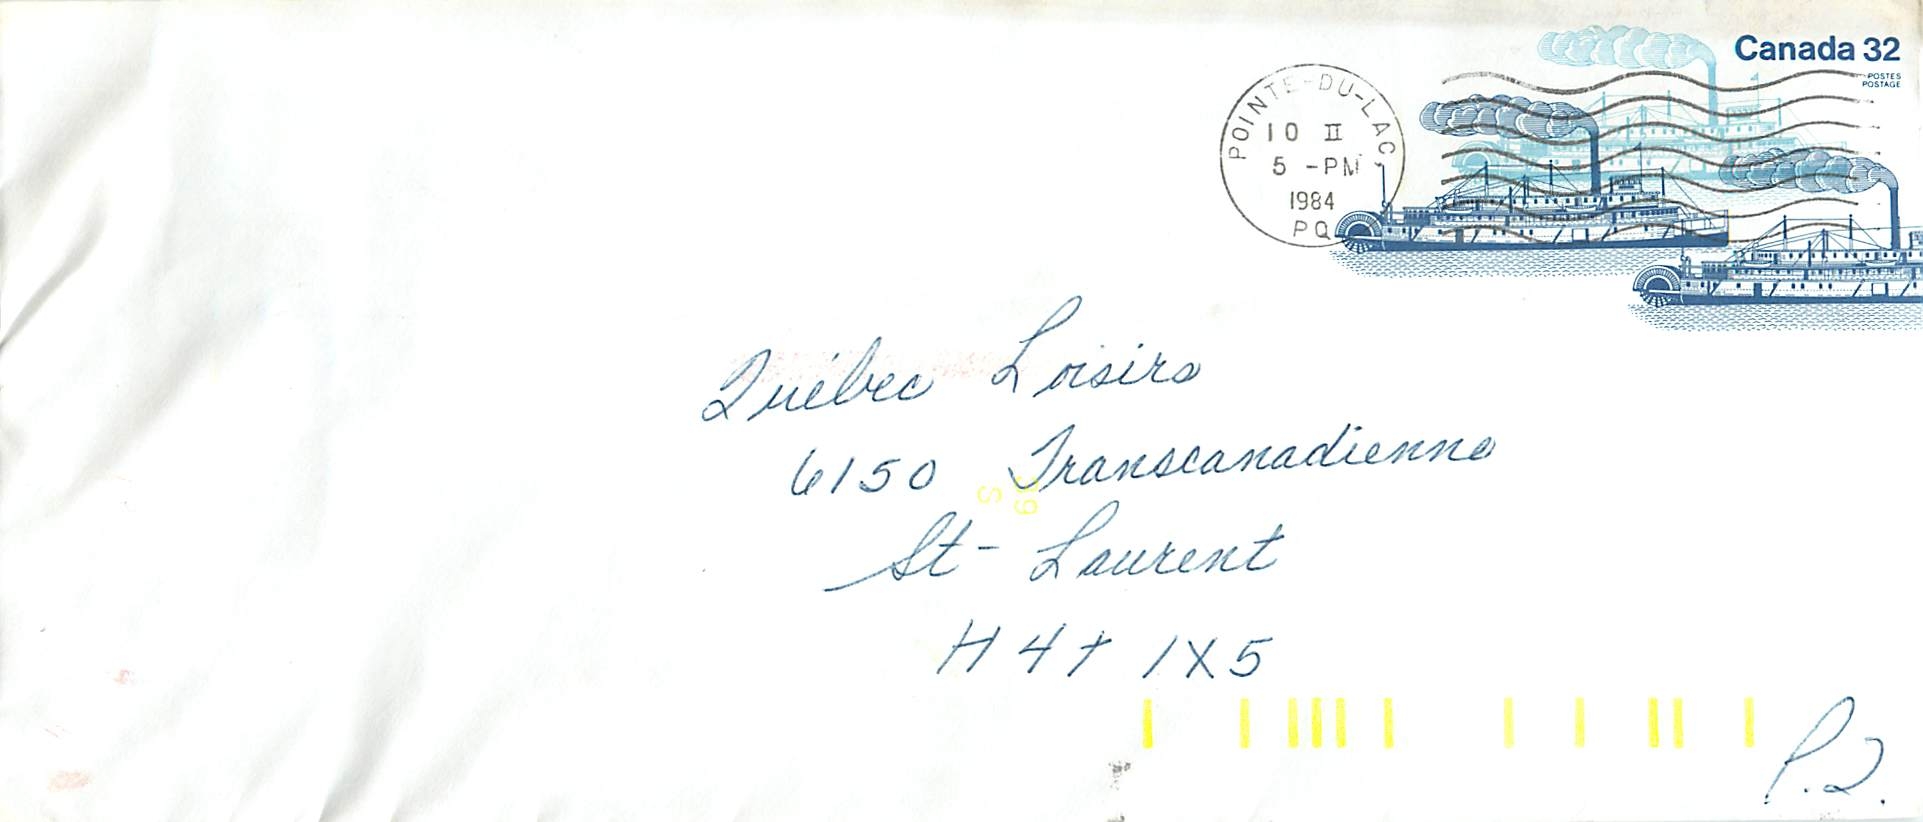 Canada 32
POSTES
POSTAGE
POINTE-DU-LAC,
10 II
5 -PM
1984
PQ
Québec Loisirs
6150 Transcanadienne
St-Laurent
H4T 1X5
P.Q.
S